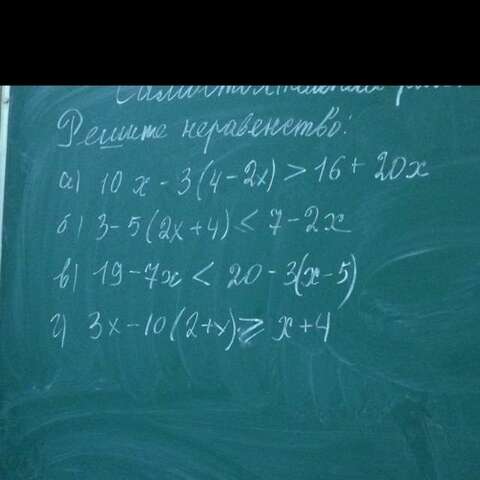 Самостоятельная
Решите неравенство:
а) 10x - 3(4-2x) > 16 + 20x
б) 3-5(2x+4) < 7-2x
в) 19-7x < 20-3(x-5)
г) 3x-10(2+x) ≥ x+4